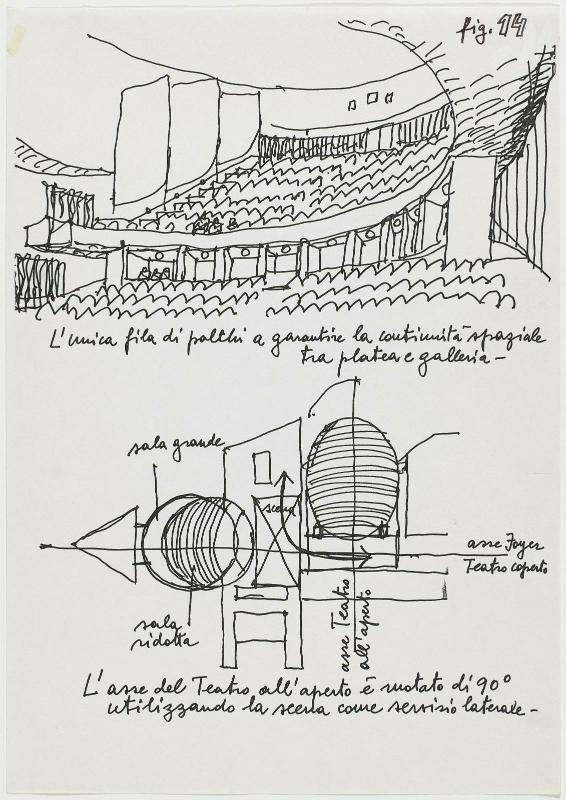 fig. 14
L'unica fila di palchi a garantire la continuità spaziale
tra platea e galleria –
sala grande
scena
asse Foyer
Teatro coperto
sala
ridotta
asse Teatro
all'aperto
L'asse del Teatro all'aperto è ruotato di 90°
utilizzando la scena come servisio laterale –